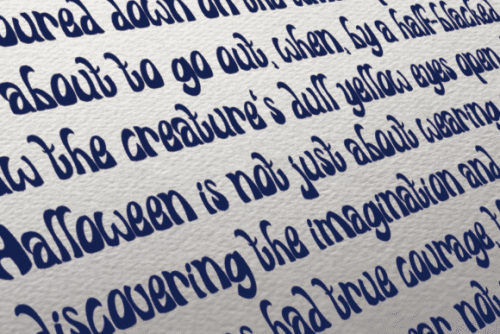 oured down on the
about to go out, when, by a half-blacked
the creature's dull yellow eyes open
Halloween is not just about wearing
discovering the imagination and
had true courage
not